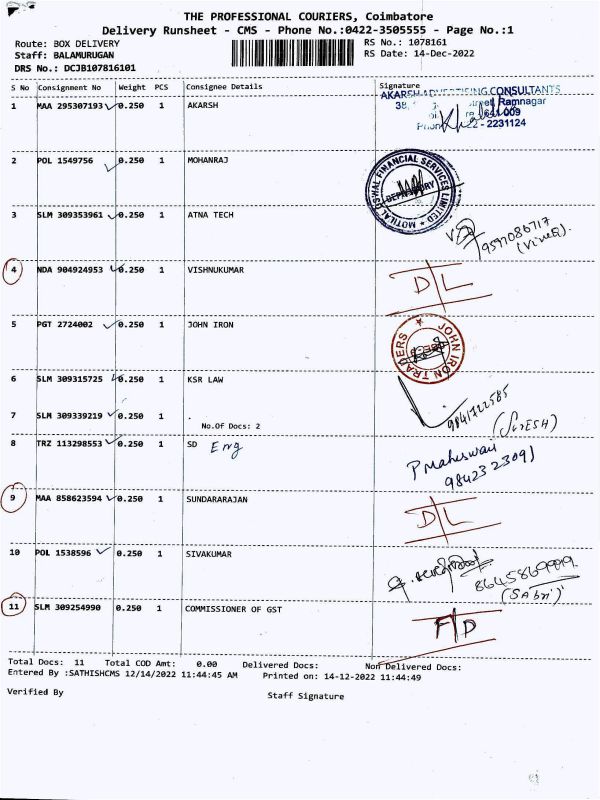 THE PROFESSIONAL COURIERS, Coimbatore
Delivery Runsheet - CMS - Phone No.:0422-3505555 - Page No.:1
Route: BOX DELIVERY
RS No.: 1078161
Staff: BALAMURUGAN
RS Date: 14-Dec-2022
DRS No.: DCJB107816101
S No Consignment No Weight PCS Consignee Details Signature
AKARSH ADVERTISING CONSULTANTS
1 MAA 295307193 0.250 1 AKARSH
38, Street, Ramnagar
641 009
Phone 22 - 2231124
2 POL 1549756 0.250 1 MOHANRAJ
MOTILAL OSWAL FINANCIAL SERVICES LIMITED
DEPOSITORY
3 SLM 309353961 0.250 1 ATNA TECH
9597086717
(Vimal).
4 NDA 904924953 0.250 1 VISHNUKUMAR
D/L
5 PGT 2724002 0.250 1 JOHN IRON
JOHN IRON TRADERS
6 SLM 309315725 0.250 1 KSR LAW
9841722585
7 SLM 309339219 0.250 1 .
No.Of Docs: 2
(SURESH)
8 TRZ 113298553 0.250 1 SD Eng
P Maheswari
9842323091
9 MAA 858623594 0.250 1 SUNDARARAJAN
D/L
10 POL 1538596 0.250 1 SIVAKUMAR
(SAbri)
11 SLM 309254990 0.250 1 COMMISSIONER OF GST
F/D
Total Docs: 11 Total COD Amt: 0.00 Delivered Docs: Non Delivered Docs:
Entered By :SATHISHCMS 12/14/2022 11:44:45 AM Printed on: 14-12-2022 11:44:49
Verified By
Staff Signature